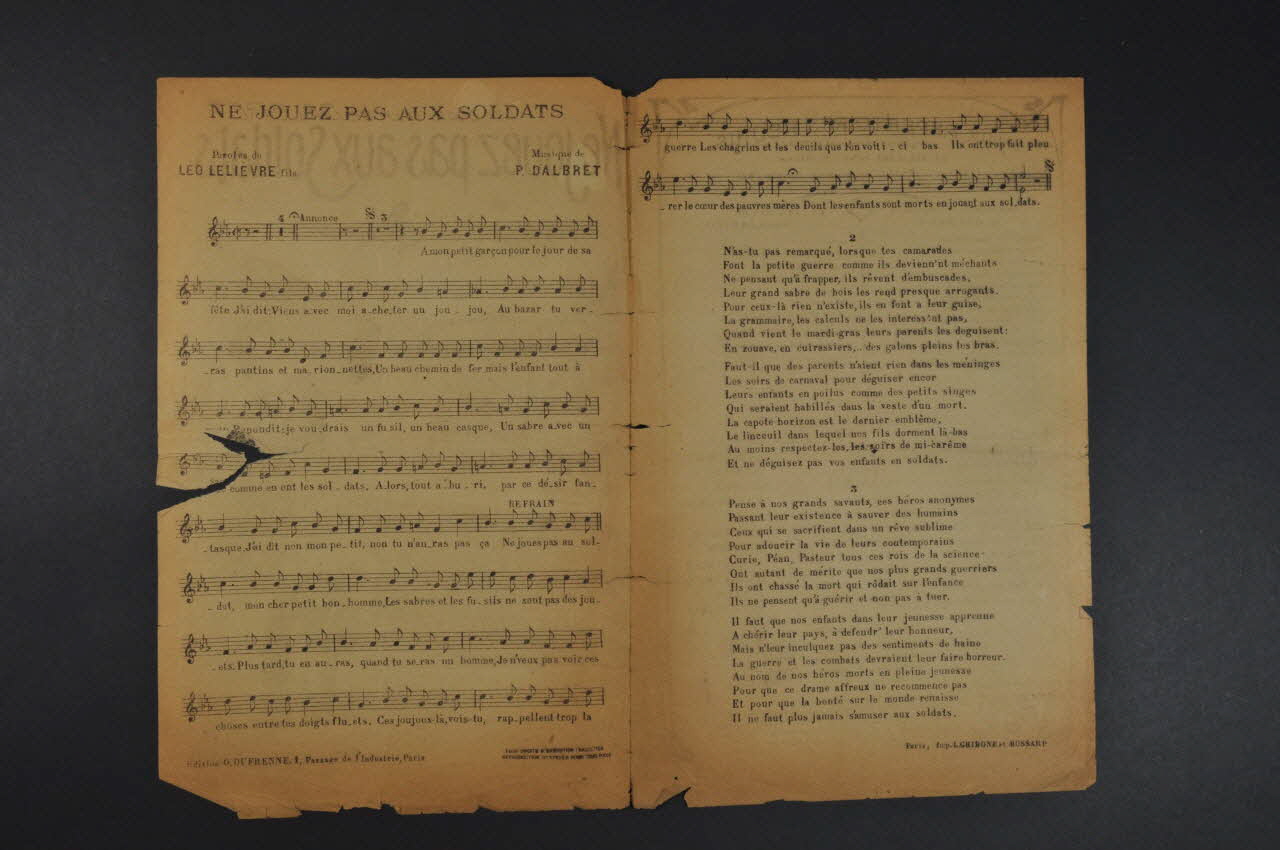 NE JOUEZ PAS AUX SOLDATS
Paroles de
LEO LELIEVRE fils
Musique de
P. DALBRET
4 Annonce 3
A mon petit garçon pour le jour de sa
fête J'ai dit: Viens a_vec moi a_che_ter un jou_jou, Au bazar tu ver_
_ras pantins et ma_rion_nettes, Un beau chemin de fer mais l'enfant tout à
Repondit: je vou_drais un fu_sil, un beau casque, Un sabre a_vec un
comme en ont les sol_dats. A_lors, tout a_hu_ri, par ce dé_sir fan_
REFRAIN
_tasque J'ai dit non mon pe_tit, non tu n'au_ras pas ça Ne joues pas au sol_
_dat, mon cher petit bon_homme, Les sabres et les fu_sils ne sont pas des jou_
_ets. Plus tard, tu en au_ras, quand tu se_ras un homme, Je n'veux pas voir ces
choses entre tes doigts flu_ets. Ces joujoux-là, vois-tu, rap_pellent trop la
Edition O. DUFRENNE, 1, Passage de l'Industrie, Paris
TOUS DROITS D'EXECUTION
guerre Les chagrins et les deuils que l'on voit i_ci_bas Ils ont trop fait pleu
_rer le cœur des pauvres mères Dont les enfants sont morts en jouant aux sol_dats.
2
N'as-tu pas remarqué, lorsque tes camarades
Font la petite guerre comme ils devienn'nt méchants
Ne pensant qu'à frapper, ils rêvent d'embuscades,
Leur grand sabre de bois les rend presque arrogants.
Pour ceux-là rien n'existe, ils en font a leur guise,
La grammaire, les calculs ne les interess'nt pas,
Quand vient le mardi-gras leurs parents les deguisent:
En zouave, en cuirassiers,.. des galons pleins les bras.
Faut-il que des parents n'aient rien dans les méninges
Les soirs de carnaval pour déguiser encor
Leurs enfants en poilus comme des petits singes
Qui seraient habillés dans la veste d'un mort.
La capote horizon est le dernier emblême,
Le linceuil dans lequel nos fils dorment là-bas
Au moins respectez-les, les soirs de mi-carême
Et ne déguisez pas vos enfants en soldats.
3
Pense à nos grands savants, ces héros anonymes
Passant leur existence à sauver des humains
Ceux qui se sacrifient dans un rêve sublime
Pour adoucir la vie de leurs contemporains
Curie, Péan, Pasteur tous ces rois de la science
Ont autant de mérite que nos plus grands guerriers
Ils ont chassé la mort qui rôdait sur l'enfance
Ils ne pensent qu'à guérir et non pas à tuer.
Il faut que nos enfants dans leur jeunesse apprenne
A chérir leur pays, à defendr' leur honneur,
Mais n'leur inculquez pas des sentiments de haine
La guerre et les combats devraient leur faire horreur.
Au nom de nos héros morts en pleine jeunesse
Pour que ce drame affreux ne recommence pas
Et pour que la bonté sur le monde renaisse
Il ne faut plus jamais s'amuser aux soldats.
Paris, Imp. L. GRIBONE et BOSSARD